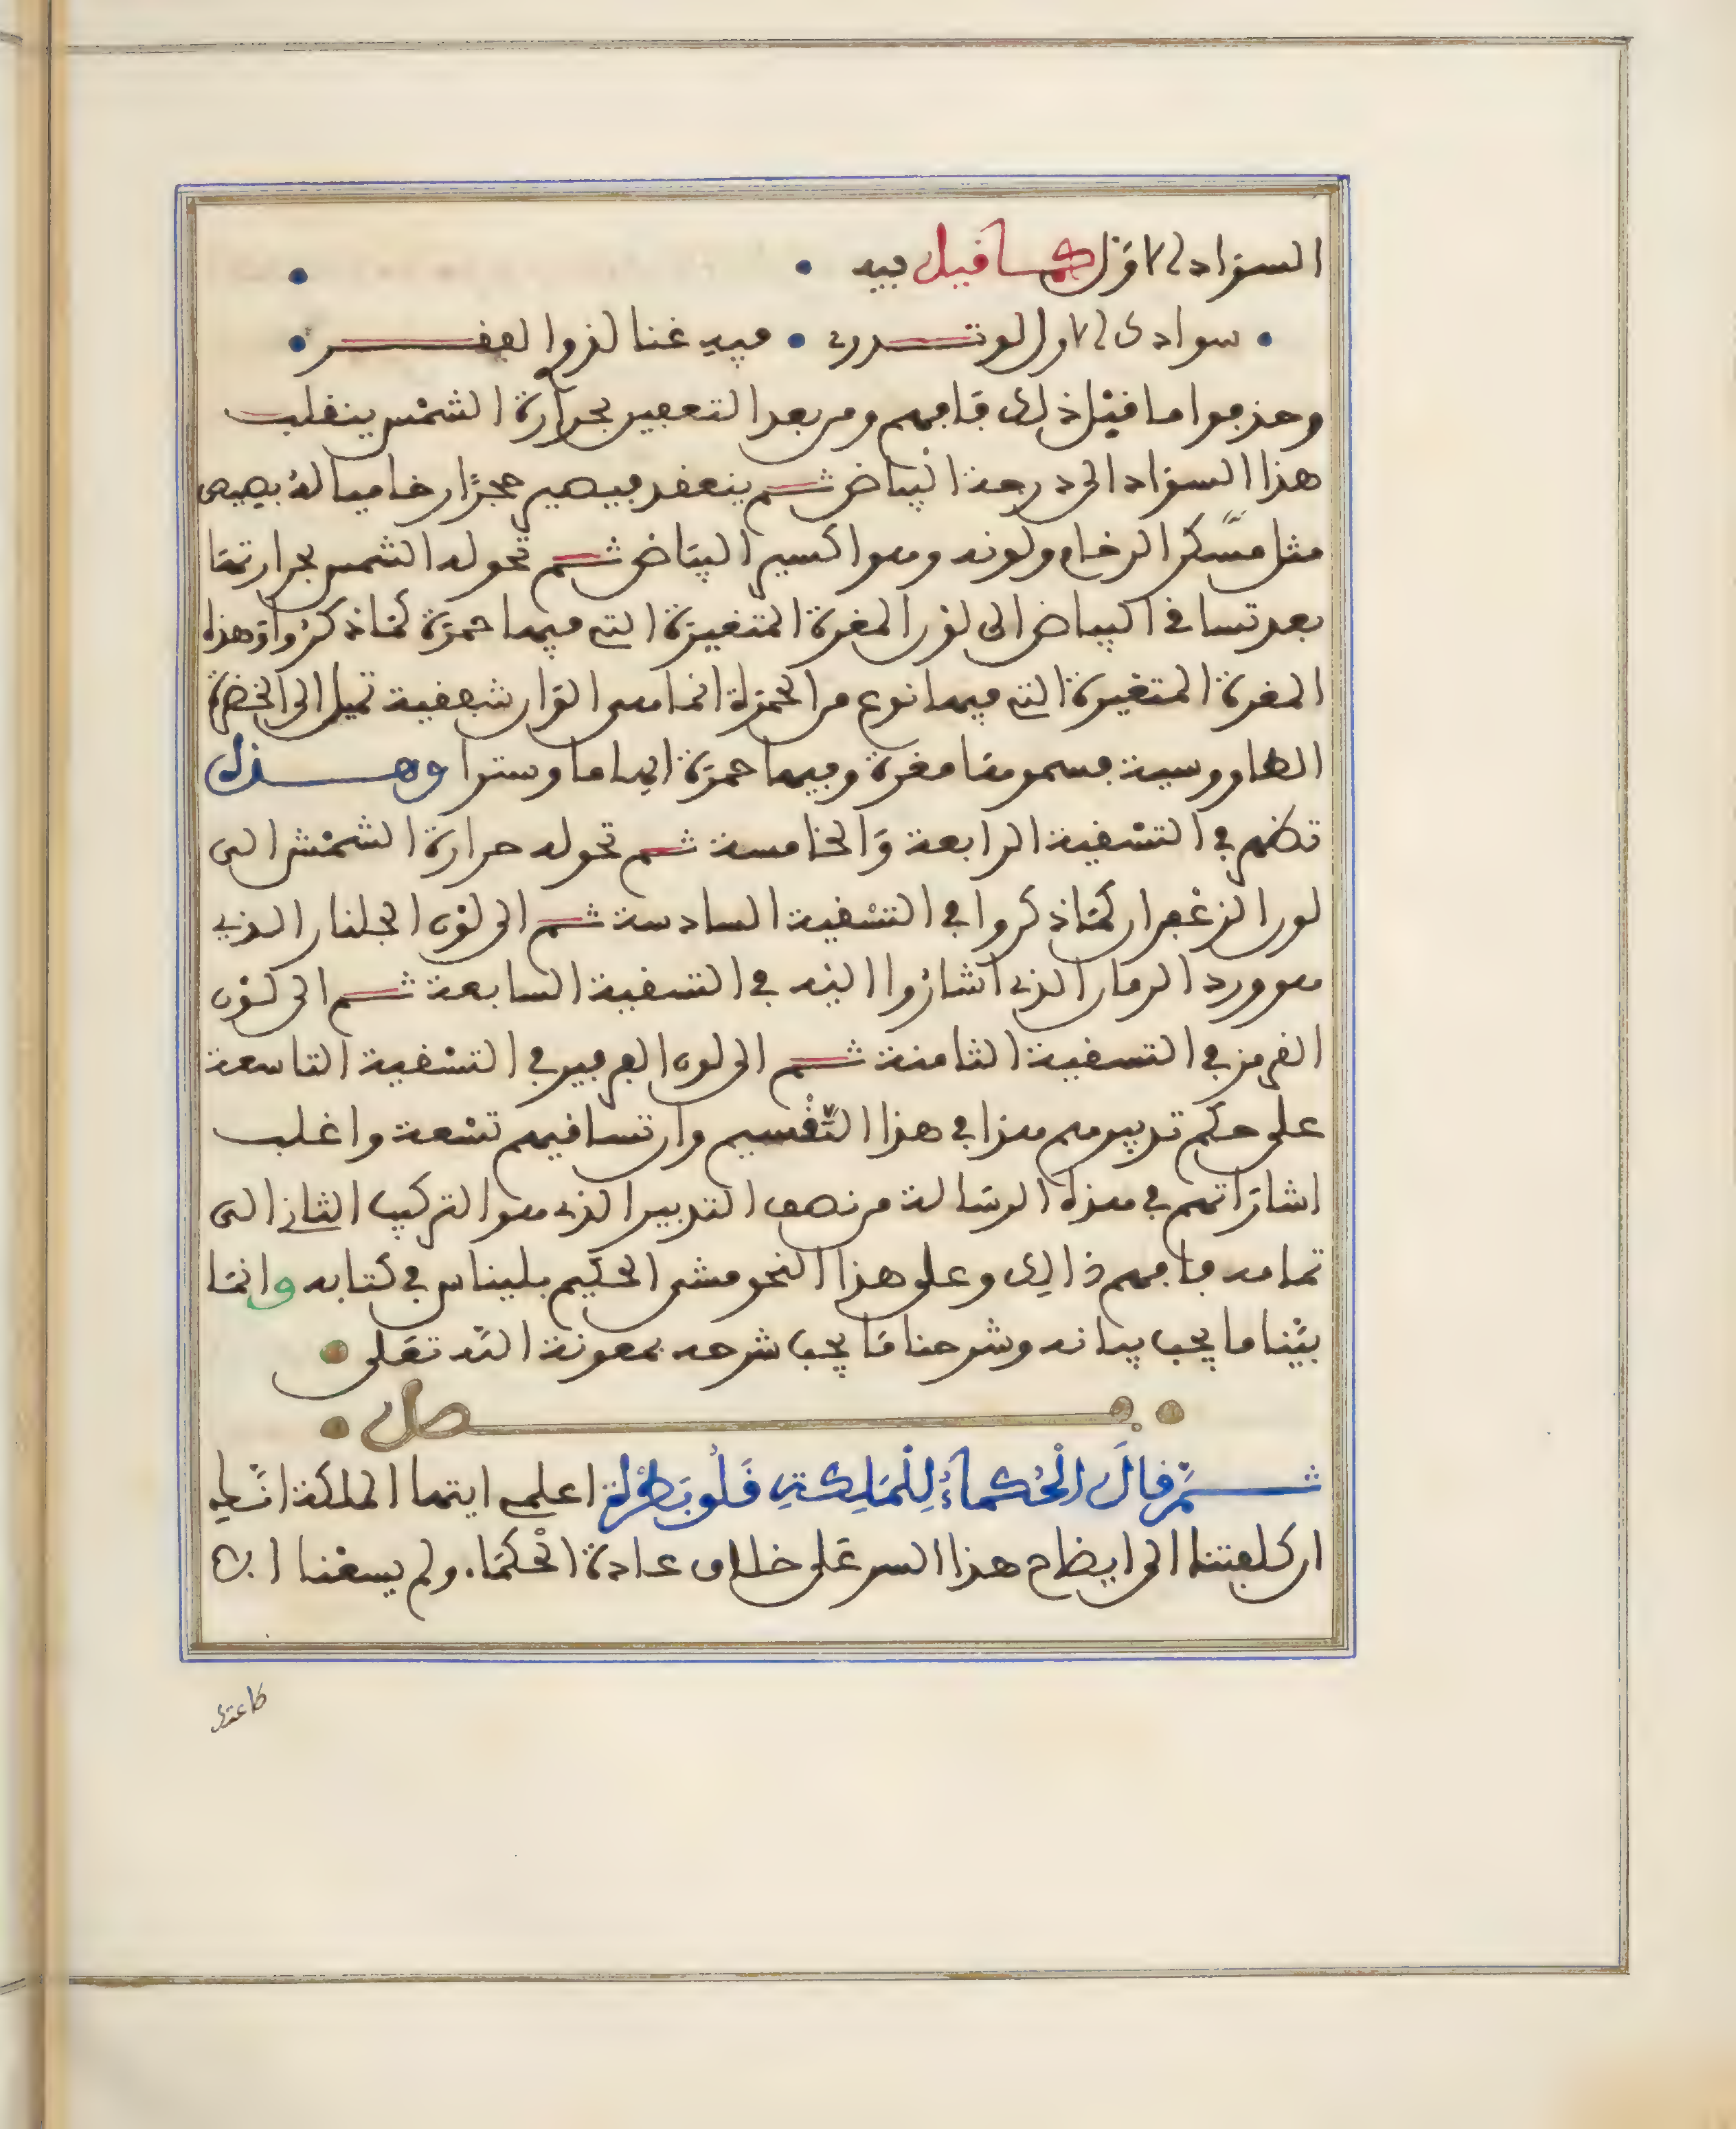 السواد الاول كما قيل فيه
سوادك الاول لو تدري • فيه غنا لذوا الفقر
وحذفوا ما قبل ذلك فافهم ومن بعد التعفين بحرارة الشمس ينقلب
هذا السواد الى درجة البياض ثم ينعقد فيصير حجرا رخاميا له بصيص
مثل مسكر الرخام ولونه وهو اكسير البياض ثم تحوله الشمس بحرارتها
بعد تساقى البياض الى لون المغرة المتغيرة التي فيها حمرة كما ذكروا وهذه
المغرة المتغيرة التي فيها نوع من الحمرة انما هي الوان شفقية تميل الى الخضرة
الطاووسية فسموها مغرة وفيها حمرة ايهاما وسترا وهذه
تظهر في التسقية الرابعة والخامسة ثم تحوله حرارة الشمس الى
لون الزعفران كما ذكروا في التسقية السادسة ثم الى لون الجلنار الذي
هو ورد الرمان الذي اشاروا اليه في التسقية السابعة ثم الى لون
القرمز في التسقية الثامنة ثم الى لون الفرفير في التسقية التاسعة
على حكم تدبيرهم هذا في هذا التقسيم وان تساقيهم تسعة واغلب
اشاراتهم في هذه الرسالة من نصف التدبير الذي هو التركيب الثاني الى
تمامه فافهم ذالك وعلى هذا النحو مشى الحكيم بليناس في كتابه وانما
بينا ما يجب بيانه وشرحنا ما يجب شرحه بمعونة الله تعلى
فصل
ثم قال الْحُكماءُ لِلْمَلِكةِ قَلُوبَطْرَة اعلمي ايتها الملكة انك
ان كلفتنا الى ايضاح هذا السر على خلاف عادة الحكماء ولم يسعنا الان